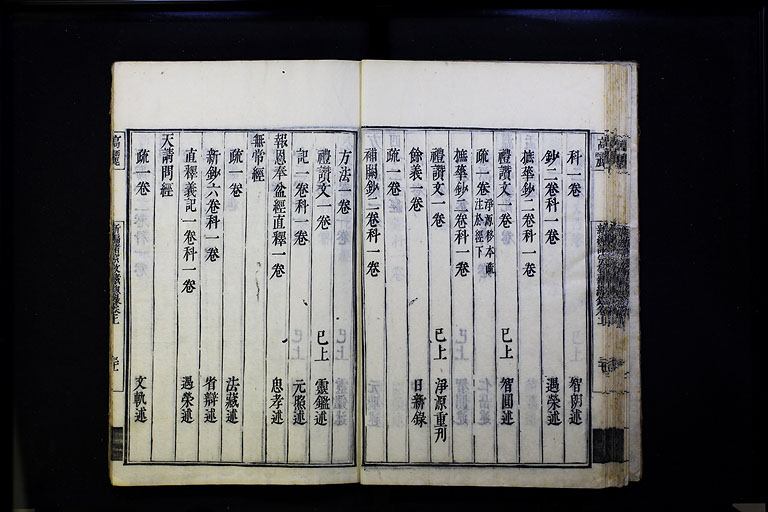 科二卷 智朗述
鈔二卷科一卷 遇榮述
摭華鈔二卷科一卷
禮讚文一卷 已上 智圓述
疏一卷 淨源移本疏注於經下
摭華鈔二卷科一卷
禮讚文一卷 已上 淨源重刊
餘義一卷 日新錄
疏一卷
補闕鈔二卷科一卷
方法一卷
禮讚文一卷 已上 靈鑑述
記一卷科一卷 元照述
報恩奉盆經直釋一卷 思孝述
無常經
疏一卷 法藏述
新鈔六卷科一卷 省辯述
直釋義記一卷科一卷 遇榮述
天請問經
疏一卷 文軌述